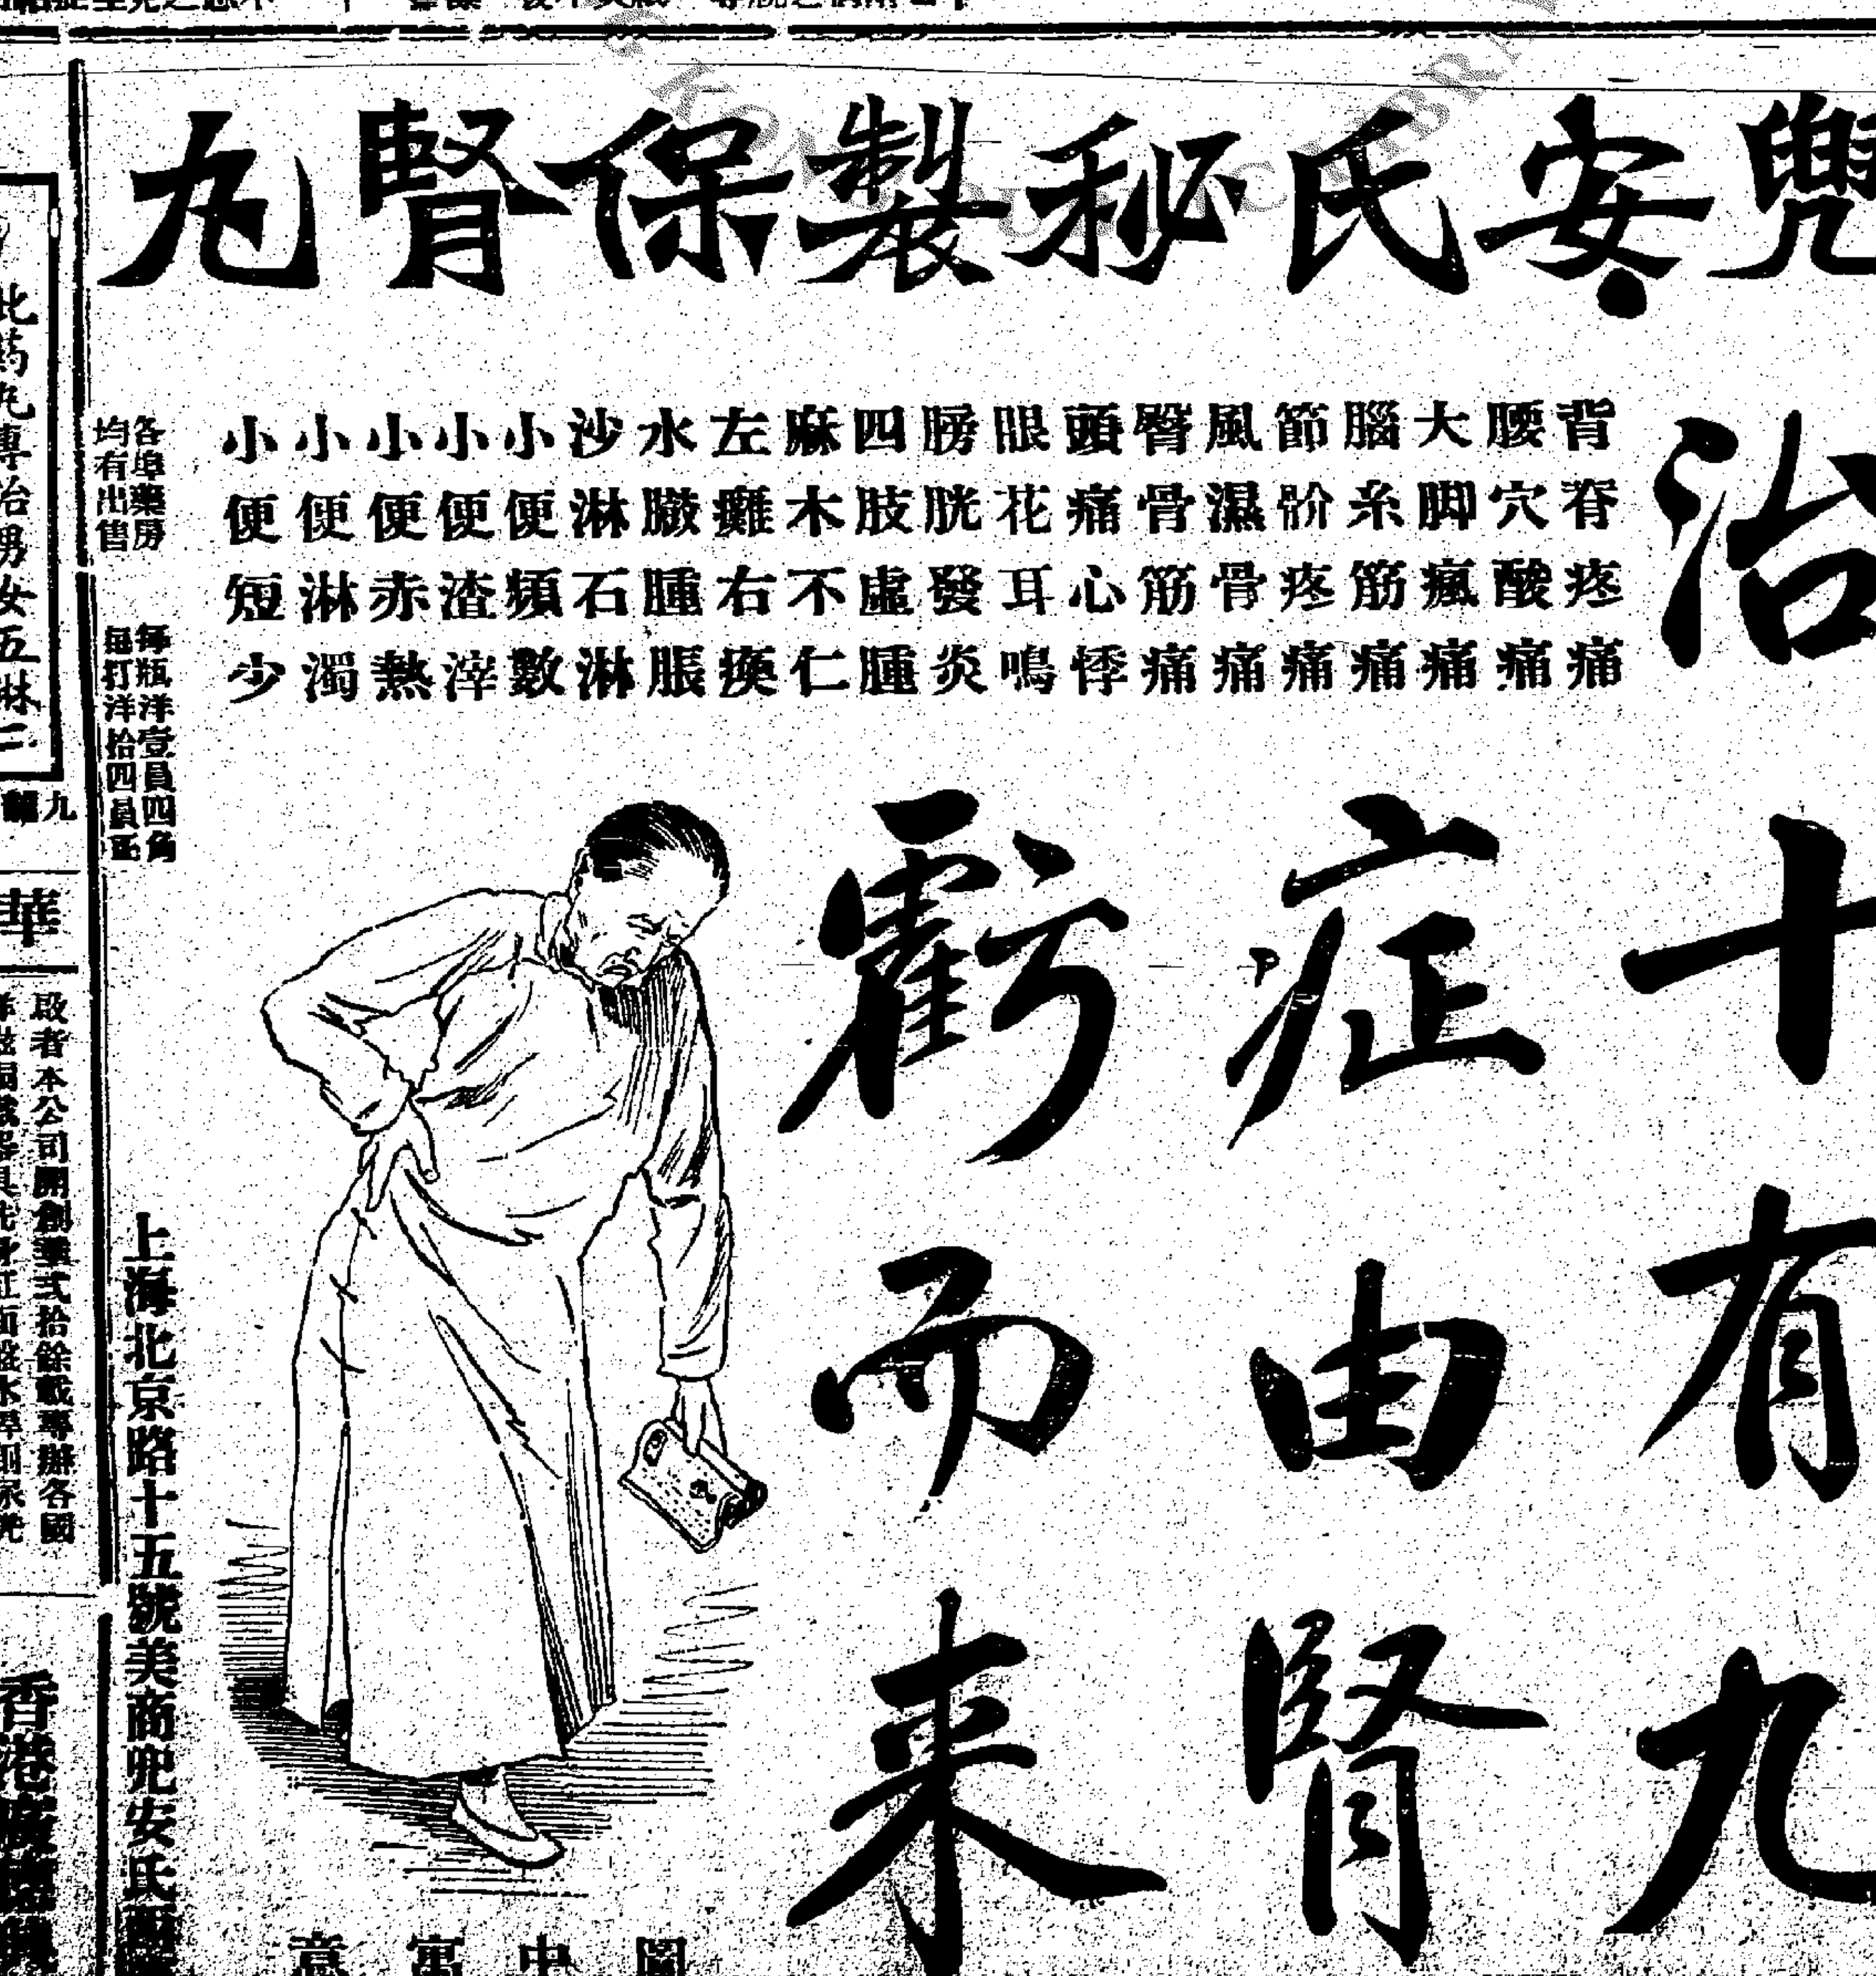 兜安氏秘製保腎丸
治
十有九
症由腎
虧而来
背脊疼痛
腰穴酸痛
大脚瘋痛
腦糸筋痛
節骱疼痛
風濕骨痛
臀骨筋痛
頭痛心悸
眼花耳鳴
膀胱發炎
四肢虛腫
麻木不仁
左癱右瘓
水臌腫脹
沙淋石淋
小便頻數
小便渣滓
小便赤熱
小便淋濁
小便短少
圖中寓意
各埠藥房
均有出售
每瓶洋壹員四角
每打洋拾四員正
上海北京路十五號美商兜安氏
此药丸專治男女五淋
九龍
華
啟者本公司開創業弍拾餘載專辦各國
香港